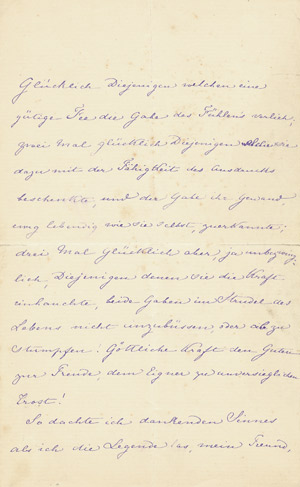 Glücklich Diejenigen welchen eine
gütige Fee die Gabe des Fühlens verlieh,
zwei Mal glücklich Diejenigen sie
dazu mit der Fähigkeit des Ausdrucks
beschenkte, und der Gabe
ewig lebendig wie sie selbst, zuerkannte;
drei Mal Glücklich aber, ja unbezwing-
lich, Diejenigen denen sie die Kraft
einhauchte, beide Gaben im Strudel des
Lebens nicht einzubüssen oder abzu
stumpfen! Göttliche Kraft dem Guten
zur Freude, dem Eigner zu unversieglichem
Trost!
So dachte ich dankenden Sinnes
als ich die Legende las, mein Freund,